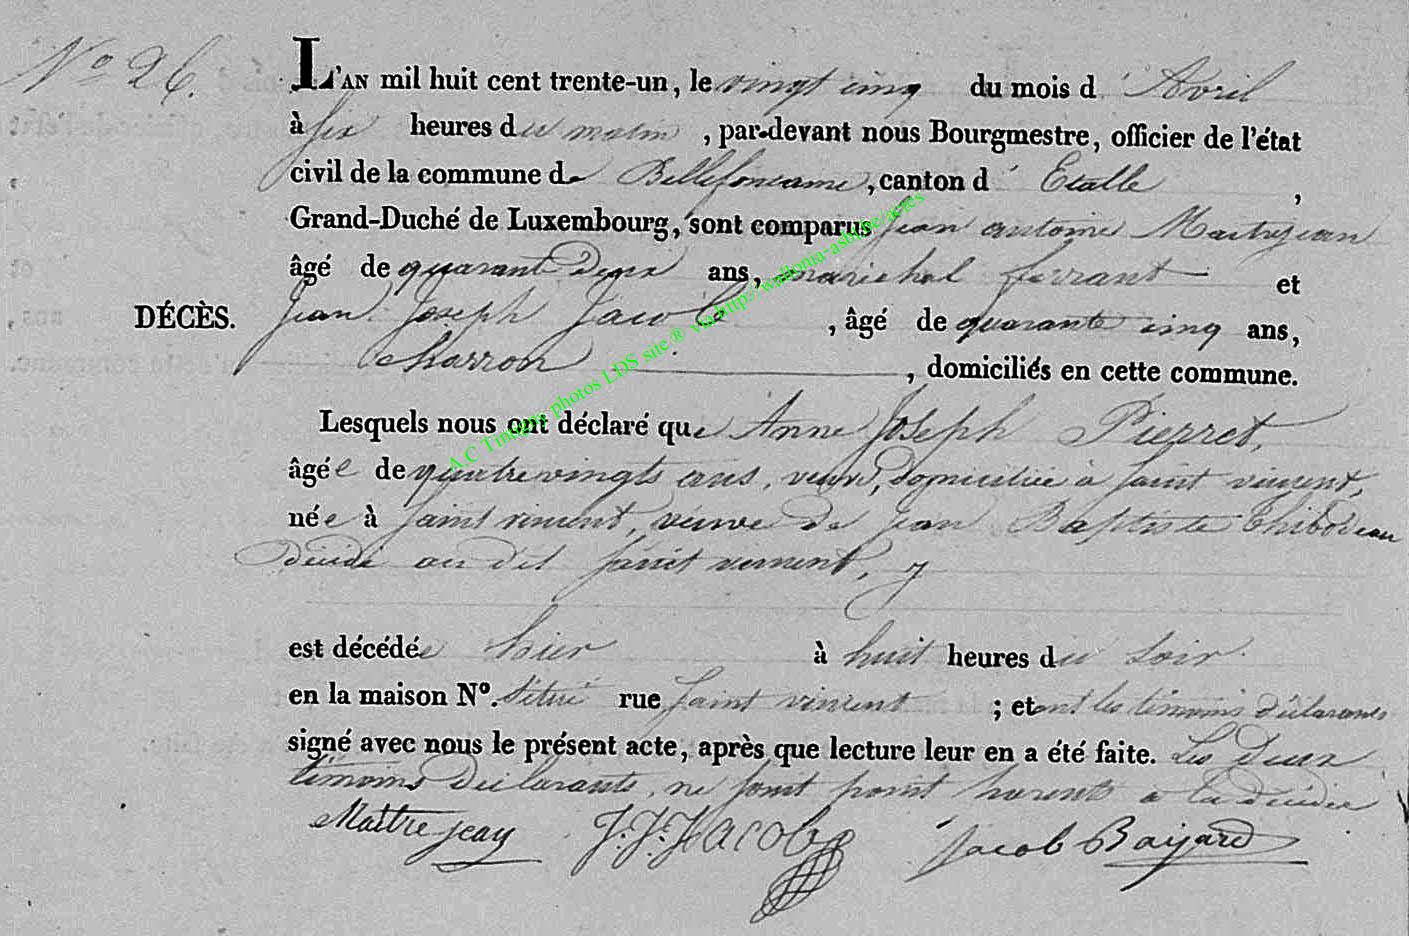 No 26.
L'AN mil huit cent trente-un, le vingt cinq du mois d'Avril
à six heures du matin, par-devant nous Bourgmestre, officier de l'état
civil de la commune de Bellefontaine, canton d'Etalle,
Grand-Duché de Luxembourg, sont comparus Jean antoine Maitrejean
âgé de quarante Deux ans, marechal ferrant et
DÉCÈS.
Jean Joseph Jacob, âgé de quarante cinq ans,
charron, domiciliés en cette commune.
Lesquels nous ont déclaré que Anne Joseph Pierret,
âgée de quatre vingts ans, veuve, domiciliée à saint vincent,
née à saint vincent, veuve de Jean Baptiste Thibodeau
décédé au dit saint vincent,
est décédée hier à huit heures du soir
en la maison No. situé rue saint vincent; et ont les témoins déclarants
signé avec nous le présent acte, après que lecture leur en a été faite. Les Deux
témoins Déclarants, ne sont point parents a la décédée
Maitrejean J. J. Jacob Jacob Baijard
A.C Tintigny photos LDS site ® via http://wallonia-asbl.be/actes